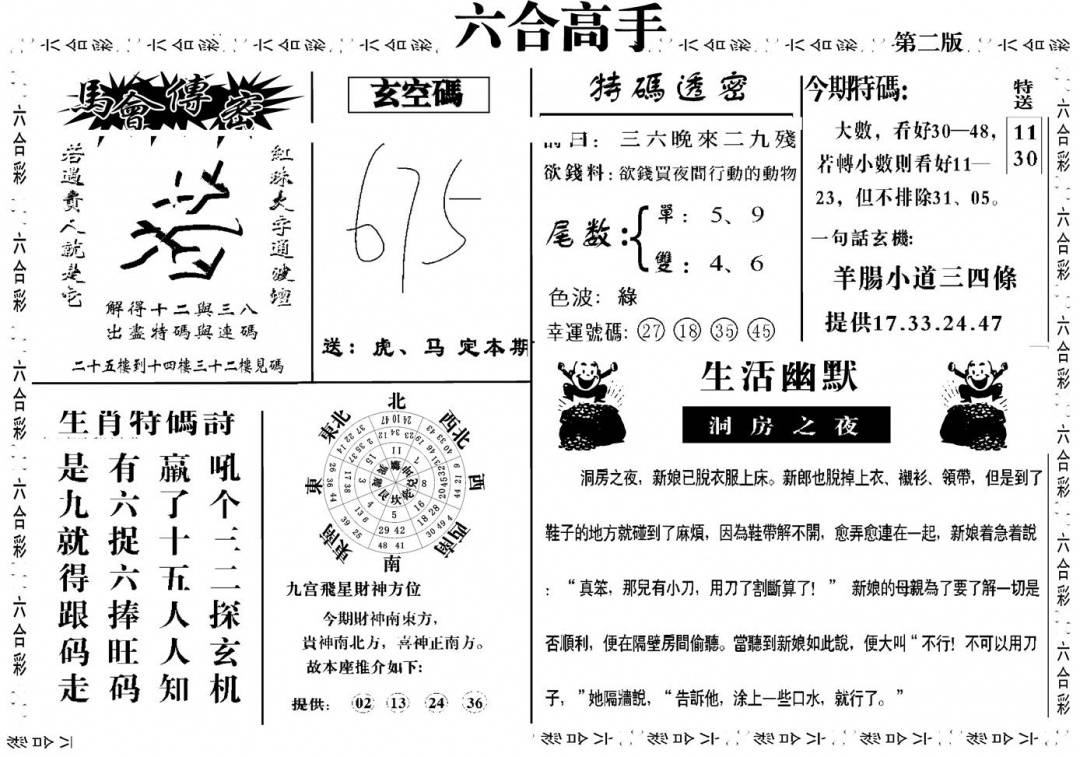 六合高手
第二版
六合彩 六合彩 六合彩 六合彩 六合彩 六合彩 六合彩 六合彩
馬會傳密
若遇貴人就是它
紅珠大字通波壇
解得十二與三八
出盡特碼與連碼
二十五樓到十四樓三十二樓見碼
玄空碼
675
送：虎、马 定本期
特碼透密
詩曰：三六晚來二九殘
欲錢料：欲錢買夜間行動的動物
尾数：
單：5、9
雙：4、6
色波：綠
幸運號碼：27 18 35 45
今期特碼：
特送
11
30
大數，看好30—48，
若轉小數則看好11—
23，但不排除31、05。
一句話玄機：
羊腸小道三四條
提供17.33.24.47
生肖特碼詩
吼个三二探玄机
贏了十五人人知
有六捉六捧旺码
是九就得跟码走
北
西北
西
西南
南
東南
東
東北
九宫飛星財神方位
今期財神南東方，
貴神南北方，喜神正南方。
故本座推介如下：
提供： 02 13 24 36
生活幽默
洞房之夜
洞房之夜，新娘已脫衣服上床。新郎也脫掉上衣、襯衫、領帶，但是到了
鞋子的地方就碰到了麻煩，因為鞋帶解不開，愈弄愈連在一起，新娘着急着說
：“真笨，那兒有小刀，用刀了割斷算了！” 新娘的母親為了要了解一切是
否順利，便在隔壁房間偷聽。當聽到新娘如此說，便大叫“不行！不可以用刀
子，”她隔牆說，“告訴他，涂上一些口水，就行了。”